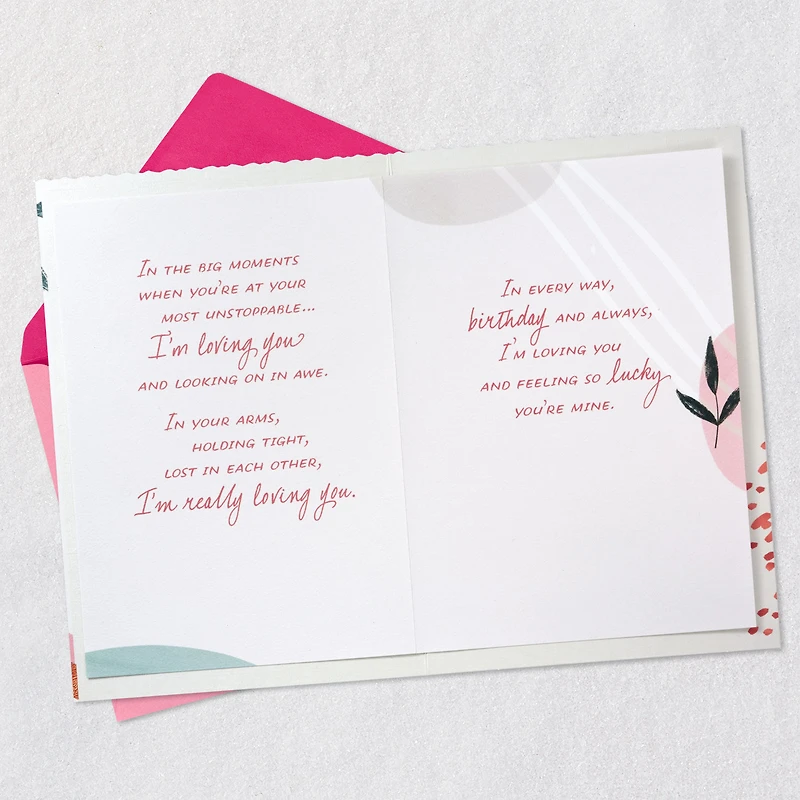 In the big moments
when you're at your
most unstoppable...
I'm loving you
and looking on in awe.
In your arms,
holding tight,
lost in each other,
I'm really loving you.
In every way,
birthday and always,
I'm loving you
and feeling so lucky
you're mine.